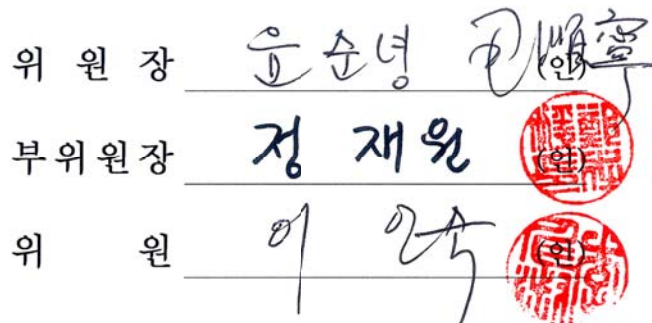 위 원 장 윤순녕 (인)
부위원장 정 재 원 (인)
위 원 이 인숙 (인)